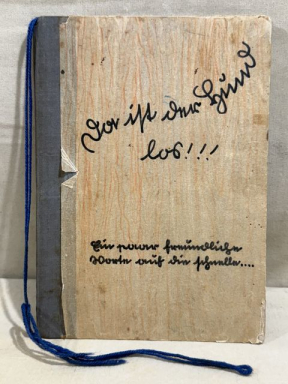 Da ist der Hund
los!!!
Ein paar freundliche
Worte auf die schnelle....